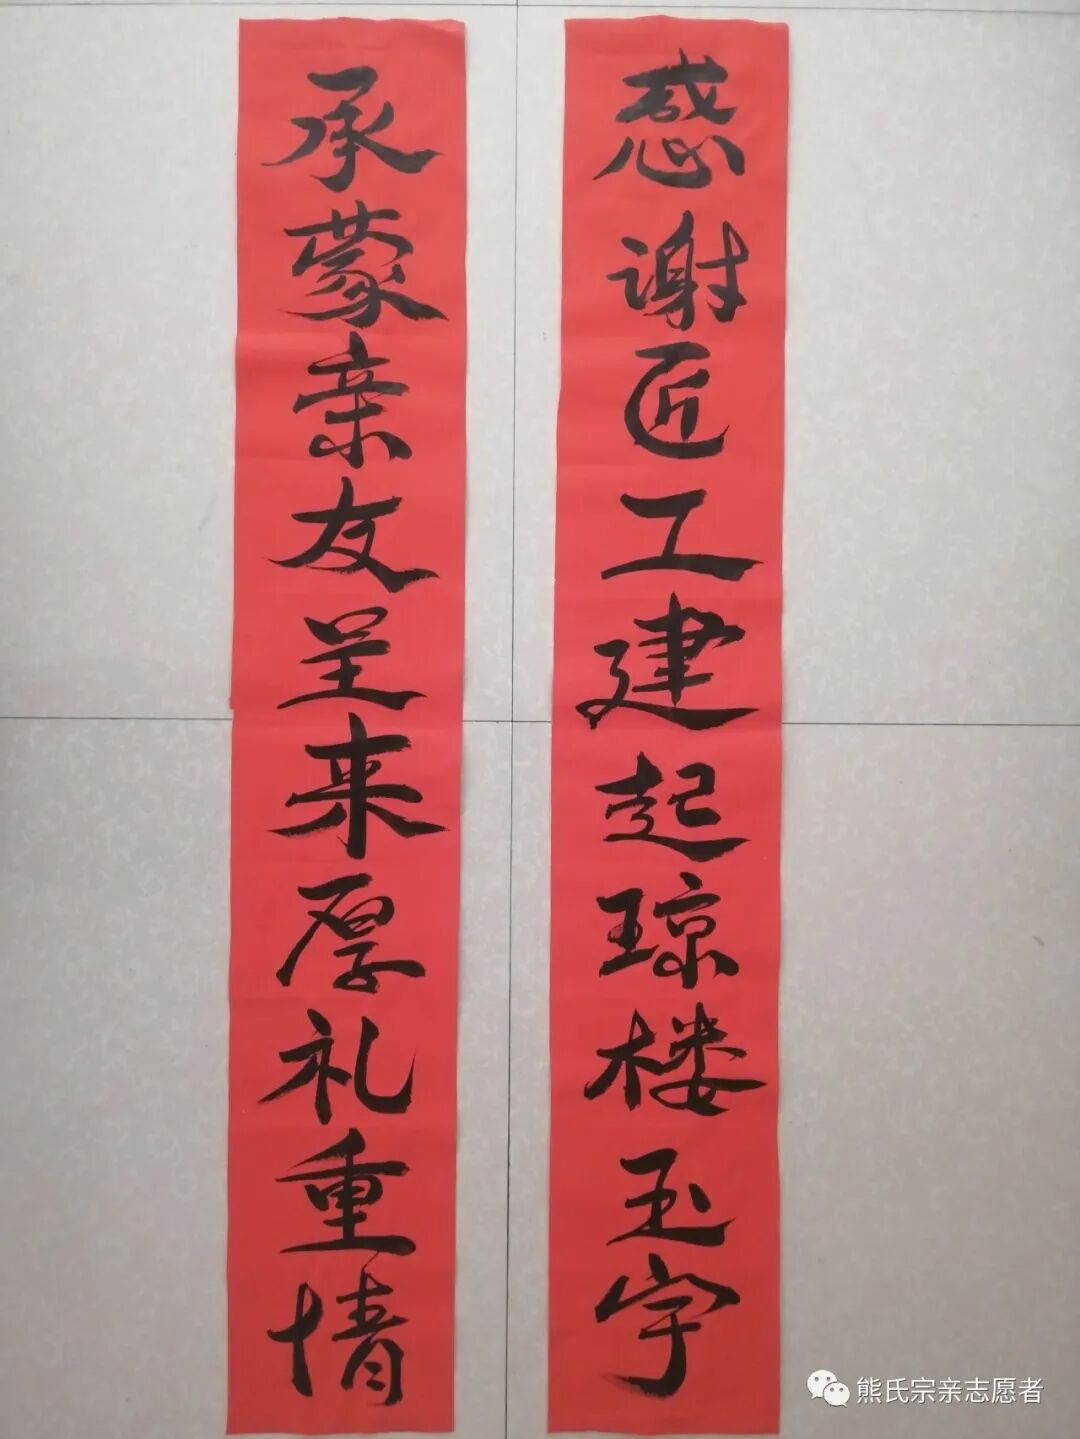 感谢匠工建起琼楼玉宇
承蒙亲友呈来厚礼重情
熊氏宗亲志愿者